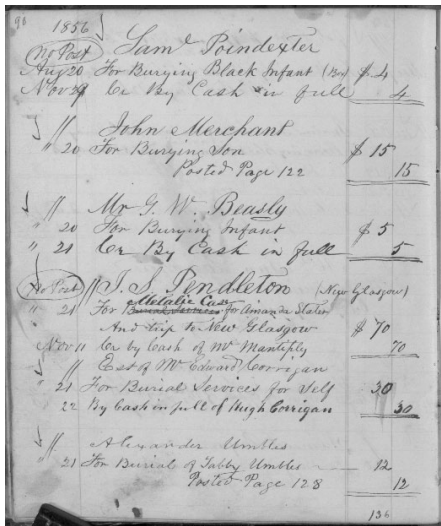 96
1856
Saml Poindexter
(no Post)
Aug 20 For Burying Black Infant (Boy) $4
Nov 29 Cr By Cash in full 4
" John Merchant
" 20 For Burying Son $15
Posted Page 122 15
" Mr G. W. Beasly
" 20 For Burying Infant $5
" 21 Cr By Cash in full 5
(no Post) " J. S. Pendleton (New Glasgow)
Metalic Case
" 21 For Burial Services for Amanda Slater
And trip to New Glasgow $70
Nov 11 Cr by Cash of Mr Mantiply 70
" Est of Mr Edward Corrigan
" 21 For Burial Services for Self 30
" 22 By Cash in full of Hugh Corrigan 30
" Alexander Umbles
" 21 For Burial of Tabby Umbles 12
Posted Page 128 12
136